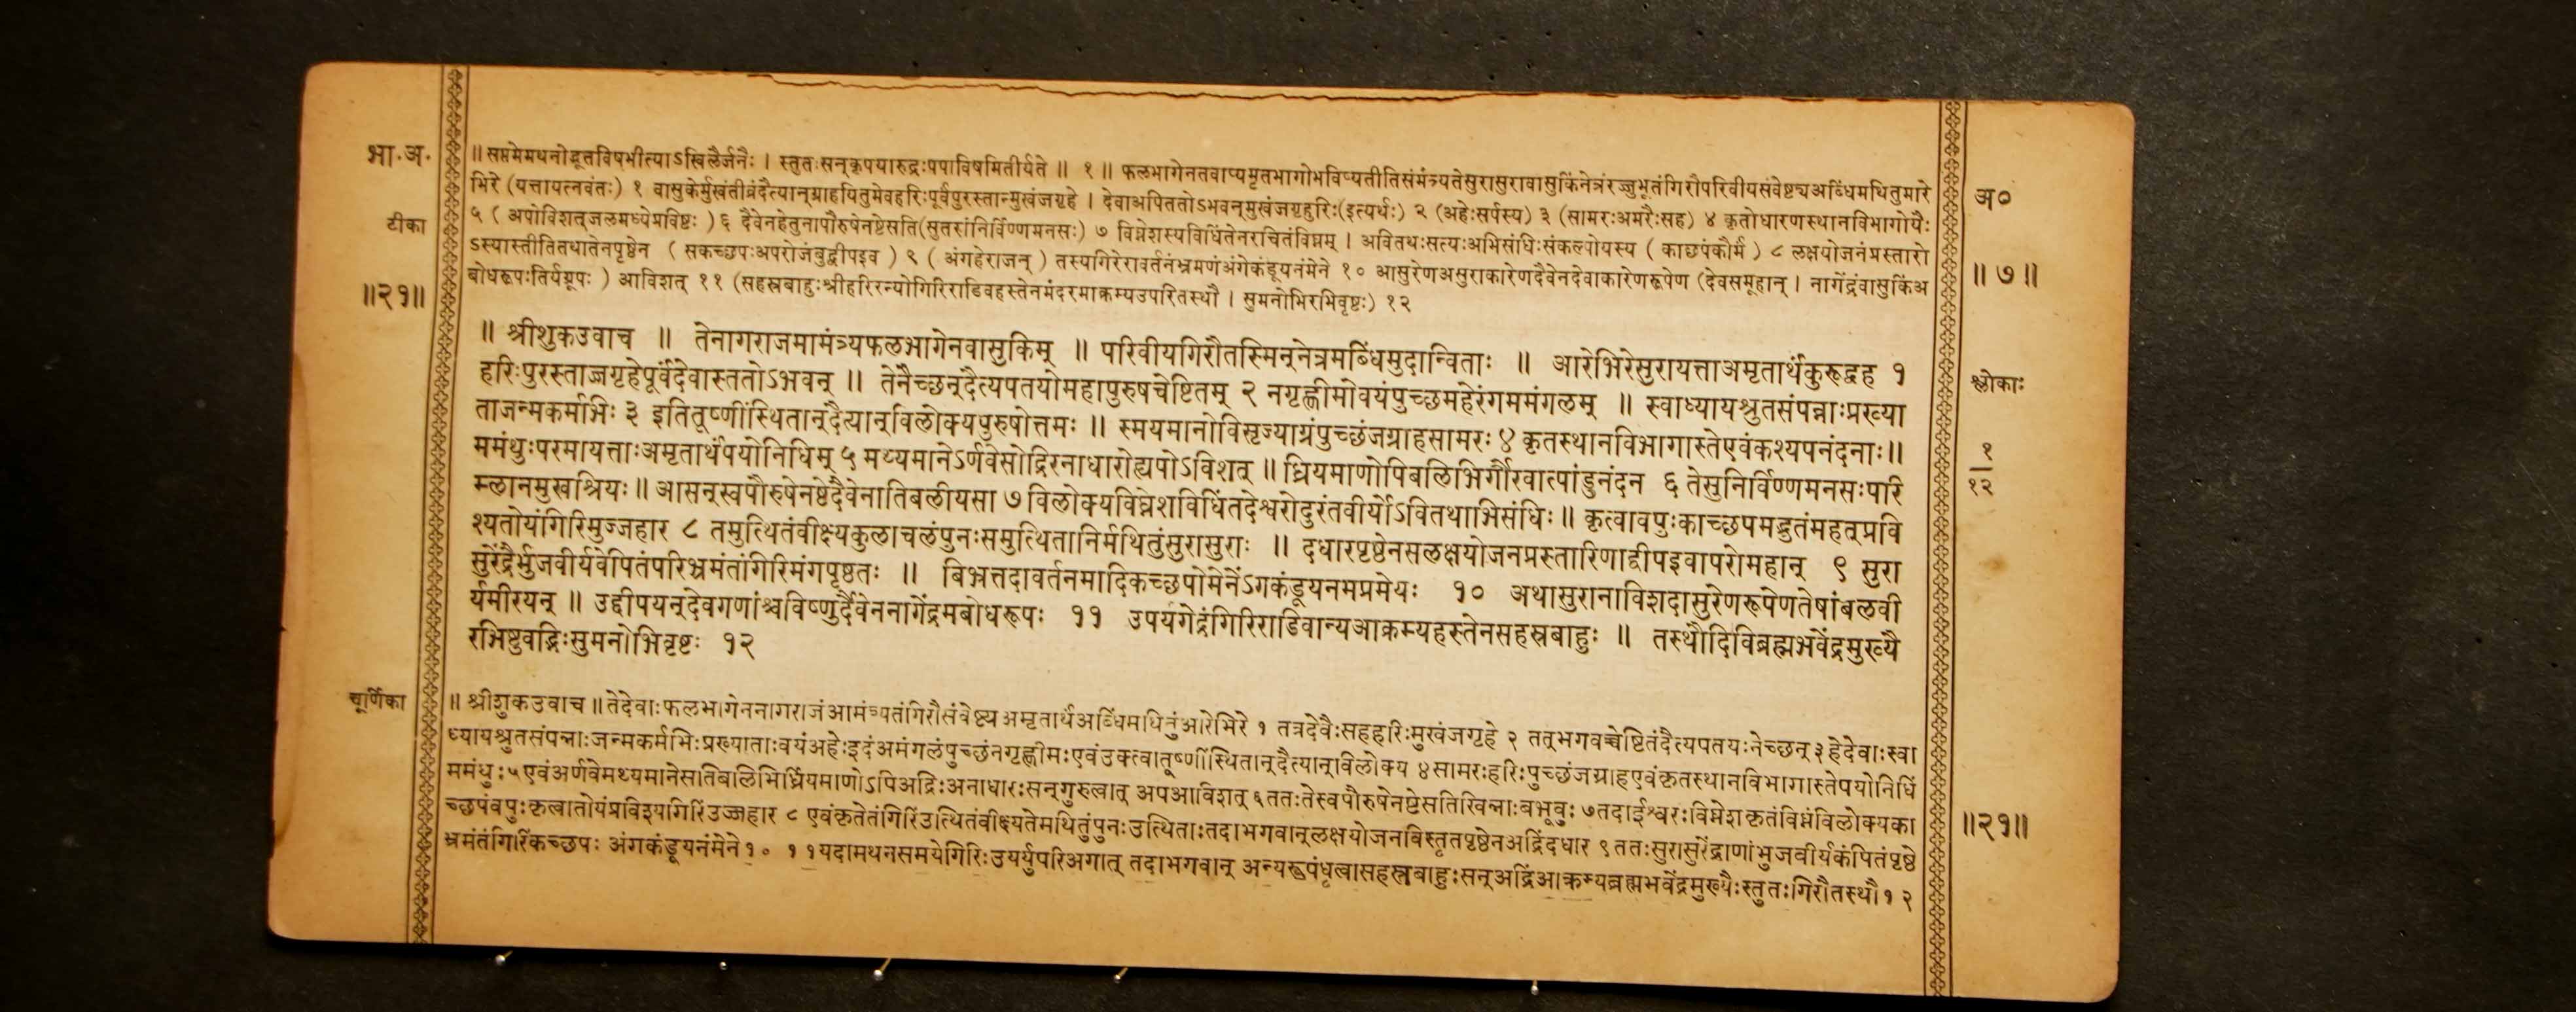 भा.अ.
॥ सप्तमेमथनोद्भूतविषभीत्याऽखिलैर्जनैः । स्तुतःसन्कृपयारुद्रःपपाविषमितीर्यते ॥ १ ॥ फलभागेनतवाप्यमृतभागोभविष्यतीतिसंमंत्र्यतेसुरासुरावासुकिंनेत्रंरज्जुभूतंगिरौपरिवीयसंवेष्ट्यअब्धिंमथितुमारे
अ०
भिरे (यत्तायत्नवंतः) १ वासुकेर्मुखंतीव्रंदैत्यान्ग्राहयितुमेवहरिःपूर्वंपुरस्तान्मुखंजगृहे । देवाअपिततोऽभवन्मुखंजगृहुरिः(इत्यर्थः) २ (अहेःसर्पस्य) ३ (सामरःअमरैःसह) ४ कृतोधारणस्थानविभागोयैः
टीका
५ ( अपोविशत्जलमध्येप्रविष्टः ) ६ दैवेनहेतुनापौरुषेनष्टेसति(सुतरांनिर्विण्णमनसः) ७ विघ्नेशस्यविधिंतेनरचितंविघ्नम् । अवितथःसत्यःअभिसंधिःसंकल्पोयस्य ( काछपंकौर्मं ) ८ लक्षयोजनंप्रस्तारो
ऽस्यास्तीतितथातेनपृष्ठेन ( सकच्छपःअपरोजंबुद्वीपइव ) ९ ( अंगहेराजन् ) तस्यगिरेरावर्तनंभ्रमणंअंगेकंडूयनंमेने १० आसुरेणअसुराकारेणदैवेनदेवाकारेणरूपेण (देवसमूहान् । नागेंद्रंवासुकिंअ
॥ ७ ॥
॥२१॥
बोधरूपःतिर्यग्रूपः ) आविशत् ११ (सहस्रबाहुःश्रीहरिरन्योगिरिराडिवहस्तेनमंदरमाक्रम्यउपरितस्थौ । सुमनोभिरभिवृष्टः) १२
॥ श्रीशुकउवाच ॥ तेनागराजमामंत्र्यफलभागेनवासुकिम् ॥ परिवीयगिरौतस्मिन्नेत्रमब्धिंमुदान्विताः ॥ आरेभिरेसुरायत्ताअमृतार्थंकुरूद्वह १
श्लोकाः
हरिःपुरस्ताज्जगृहेपूर्वंदेवास्ततोऽभवन् ॥ तेनैच्छन्दैत्यपतयोमहापुरुषचेष्टितम् २ नगृह्णीमोवयंपुच्छमहेरंगममंगलम् ॥ स्वाध्यायश्रुतसंपन्नाःप्रख्या
ताजन्मकर्मभिः ३ इतितूष्णींस्थितान्दैत्यान्विलोक्यपुरुषोत्तमः ॥ स्मयमानोविसृज्याग्रंपुच्छंजग्राहसामरः ४ कृतस्थानविभागास्तेएवंकश्यपनंदनाः॥
१
१२
ममंथुःपरमायत्ताःअमृतार्थंपयोनिधिम् ५ मथ्यमानेऽर्णवेसोद्रिरनाधारोह्यपोऽविशत् ॥ ध्रियमाणोपिबलिभिर्गौरवात्पांडुनंदन ६ तेसुनिर्विण्णमनसःपरि
म्लानमुखश्रियः॥ आसन्स्वपौरुषेनष्टेदैवेनातिबलीयसा ७ विलोक्यविघ्नेशविधिंतदेश्वरोदुरंतवीर्योऽवितथाभिसंधिः॥ कृत्वावपुःकाच्छपमद्भुतंमहत्प्रवि
श्यतोयंगिरिमुज्जहार ८ तमुत्थितंवीक्ष्यकुलाचलंपुनःसमुत्थितानिर्मथितुंसुरासुराः ॥ दधारपृष्ठेनसलक्षयोजनप्रस्तारिणाद्वीपइवापरोमहान् ९ सुरा
सुरेंद्रैर्भुजवीर्यवेपितंपरिभ्रमंतंगिरिमंगपृष्ठतः ॥ बिभ्रत्तदावर्तनमादिकच्छपोमेनेंऽगकंडूयनमप्रमेयः १० अथासुरानाविशदासुरेणरूपेणतेषांबलवी
र्यमीरयन् ॥ उद्दीपयन्देवगणांश्चविष्णुर्दैवेननागेंद्रमबोधरूपः ११ उपर्यगेंद्रंगिरिराडिवान्यआक्रम्यहस्तेनसहस्रबाहुः ॥ तस्थौदिविब्रह्मभवेंद्रमुख्यै
रभिष्टुवद्भिःसुमनोभिवृष्टः १२
चूर्णिका
॥ श्रीशुकउवाच ॥ तेदेवाःफलभागेननागराजंआमंत्र्यतंगिरौसंवेष्ट्यअमृतार्थंअब्धिंमथितुंआरेभिरे १ तत्रदेवैःसहहरिःमुखंजगृहे २ तत्भगवच्चेष्टितंदैत्यपतयःनेच्छन् ३ हेदेवाःस्वा
ध्यायश्रुतसंपन्नाःजन्मकर्मभिःप्रख्याताःवयंअहेःइदंअमंगलंपुच्छंनगृह्णीमःएवंउक्त्वातूष्णींस्थितान्दैत्यान्विलोक्य ४ सामरःहरिःपुच्छंजग्राहएवंकृतस्थानविभागास्तेपयोनिधिं
ममंथुः५ एवंअर्णवेमथ्यमानेसतिबलिभिर्ध्रियमाणोऽपिअद्रिःअनाधारःसन्गुरुत्वात् अपआविशत् ६ ततःतेस्वपौरुषेनष्टेसतिखिन्नाःबभूवुः ७तदाईश्वरःविघ्नेशकृतंविघ्नंविलोक्यका
च्छपंवपुःकृत्वातोयंप्रविश्यगिरिंउज्जहार ८ एवंकृतेतंगिरिंउत्थितंवीक्ष्यतेमथितुंपुनःउत्थिताःतदाभगवान्लक्षयोजनविस्तृतपृष्ठेनअद्रिंदधार ९ ततःसुरासुरेंद्राणांभुजवीर्यकंपितंपृष्ठे
॥२१॥
भ्रमंतंगिरिंकच्छपः अंगकंडूयनंमेने१० ११यदामथनसमयेगिरिःउपर्युपरिअगात् तदाभगवान् अन्यरूपंधृत्वासहस्रबाहुःसन्अद्रिंआक्रम्यब्रह्मभवेंद्रमुख्यैःस्तुतःगिरौतस्थौ१२